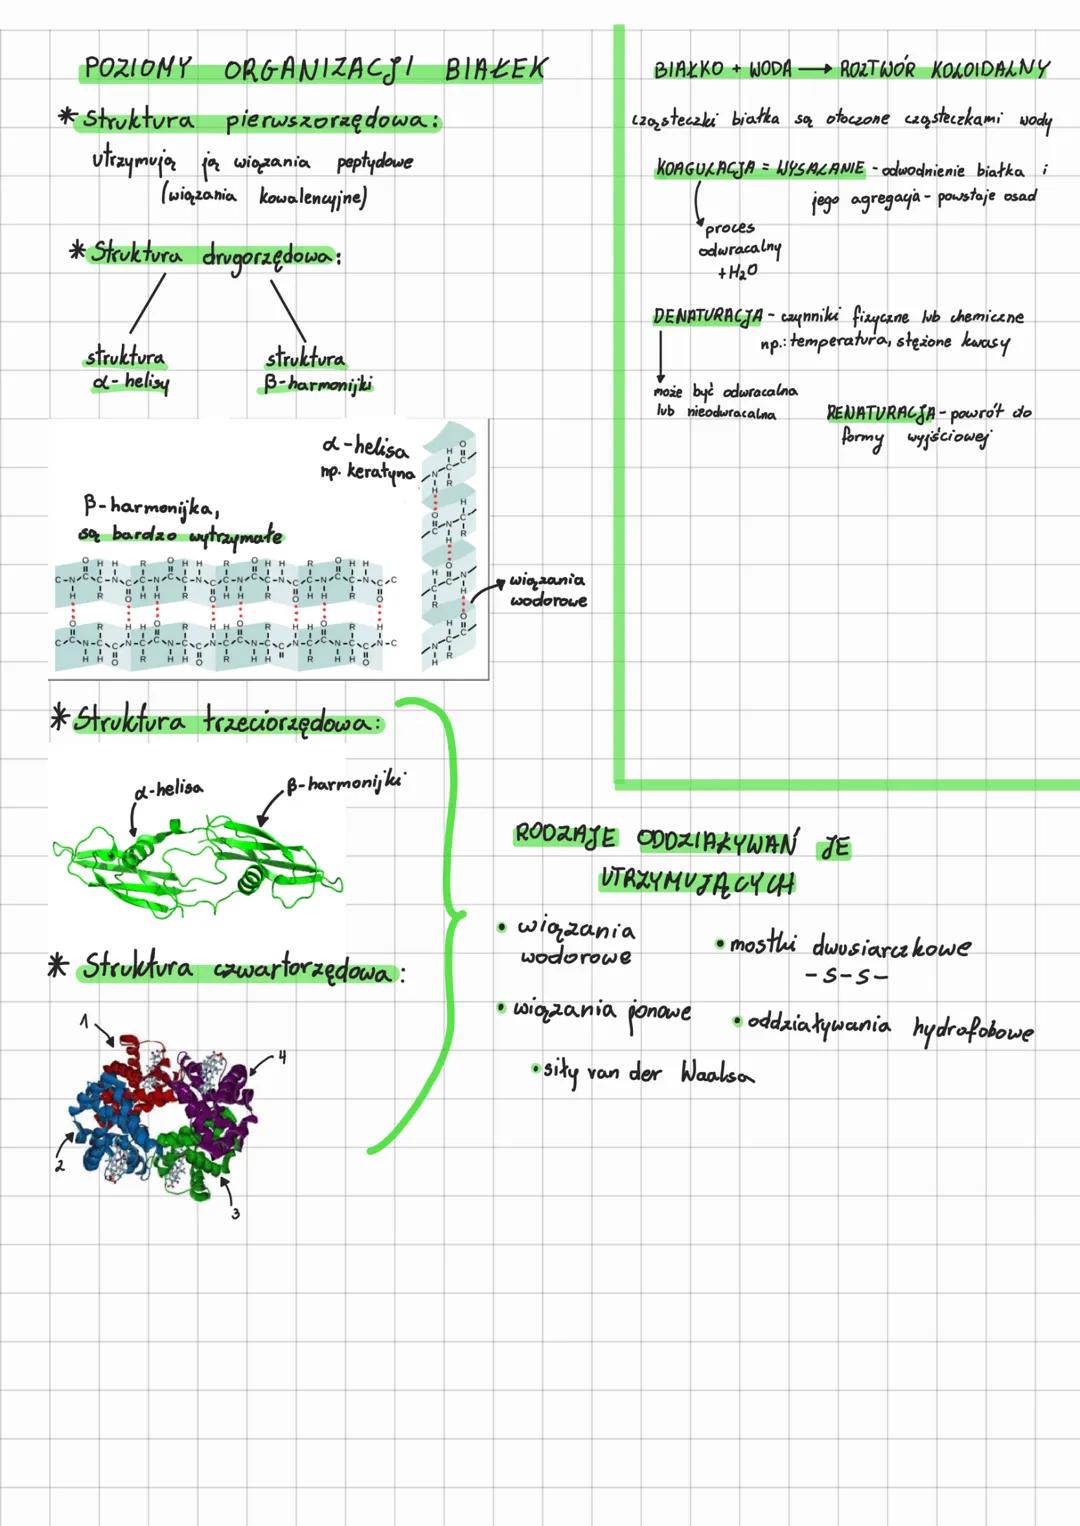 POZIOMY ORGANIZACJI BIAŁEK
* Struktura pierwszorzędowa:
utrzymują ją wiązania peptydowe
(wiązania kowalencyjne)
* Struktura drugorzędowa:
struktura
α-helisy
struktura
β-harmonijki
α-helisa
np. keratyna
β-harmonijka,
są bardzo wytrzymałe
wiązania
wodorowe
* Struktura trzeciorzędowa:
α-helisa
β-harmonijki
* Struktura czwartorzędowa:
1
4
2
3
BIAŁKO + WODA → ROZTWÓR KOLOIDALNY
cząsteczki białka są otoczone cząsteczkami wody
KOAGULACJA = WYSALANIE - odwodnienie białka i
jego agregacja - powstaje osad
proces
odwracalny
+H₂O
DENATURACJA - czynniki fizyczne lub chemiczne
np.: temperatura, stężone kwasy
może być odwracalna
lub nieodwracalna
RENATURACJA - powrót do
formy wyjściowej
RODZAJE ODDZIAŁYWAŃ JE
UTRZYMUJĄCYCH
• wiązania
wodorowe
• mostki dwusiarczkowe
-S-S-
• wiązania jonowe
• oddziaływania hydrofobowe
• siły van der Waalsa